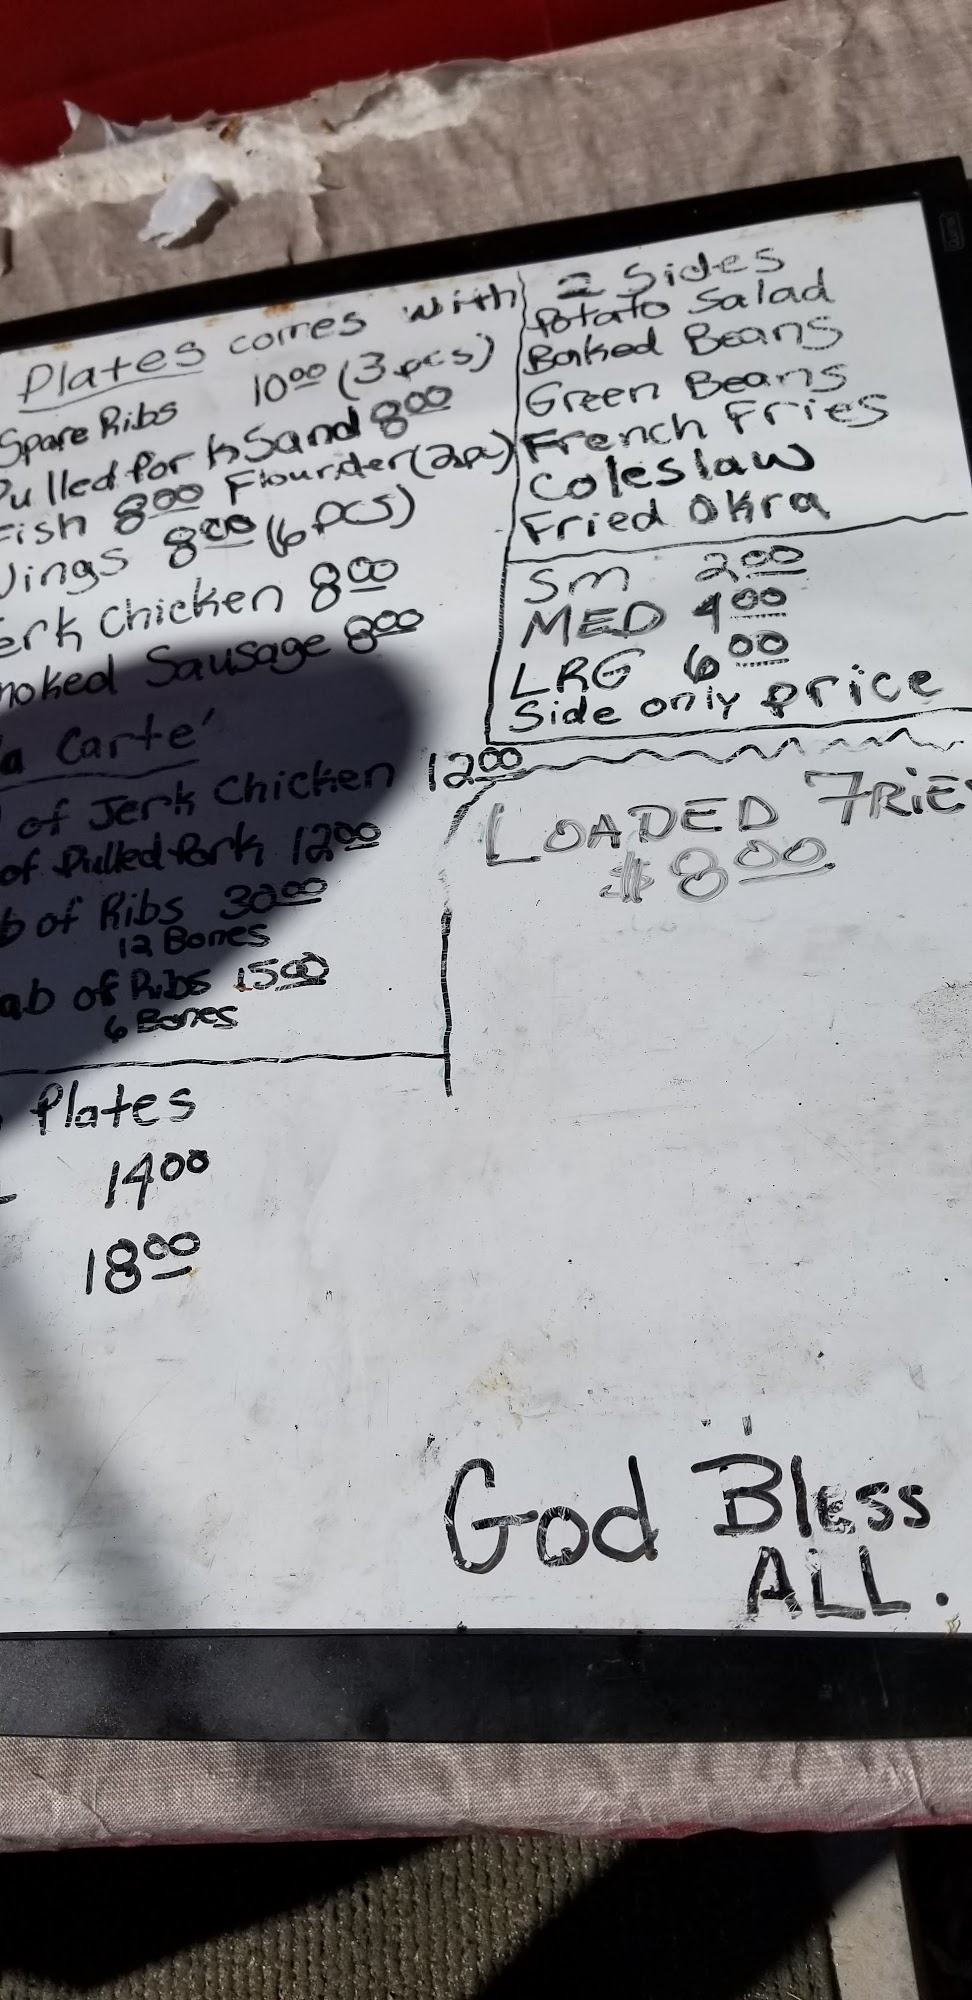 Plates comes with 2 Sides
Spare Ribs 10.00 (3 pcs)
Pulled Pork Sand 8.00
Fish 8.00 Flounder (2 pc)
Wings 8.00 (6 pcs)
erk Chicken 8.00
moked Sausage 8.00
Potato Salad
Baked Beans
Green Beans
French Fries
Coleslaw
Fried Okra
Sm 2.00
MED 4.00
LRG 6.00
Side only price
a Carte'
of Jerk Chicken 12.00
of Pulled Pork 12.00
b of Ribs 30.00
12 Bones
ab of Ribs 15.00
6 Bones
LOADED FRIES
$8.00
Plates
14.00
18.00
God Bless
ALL.